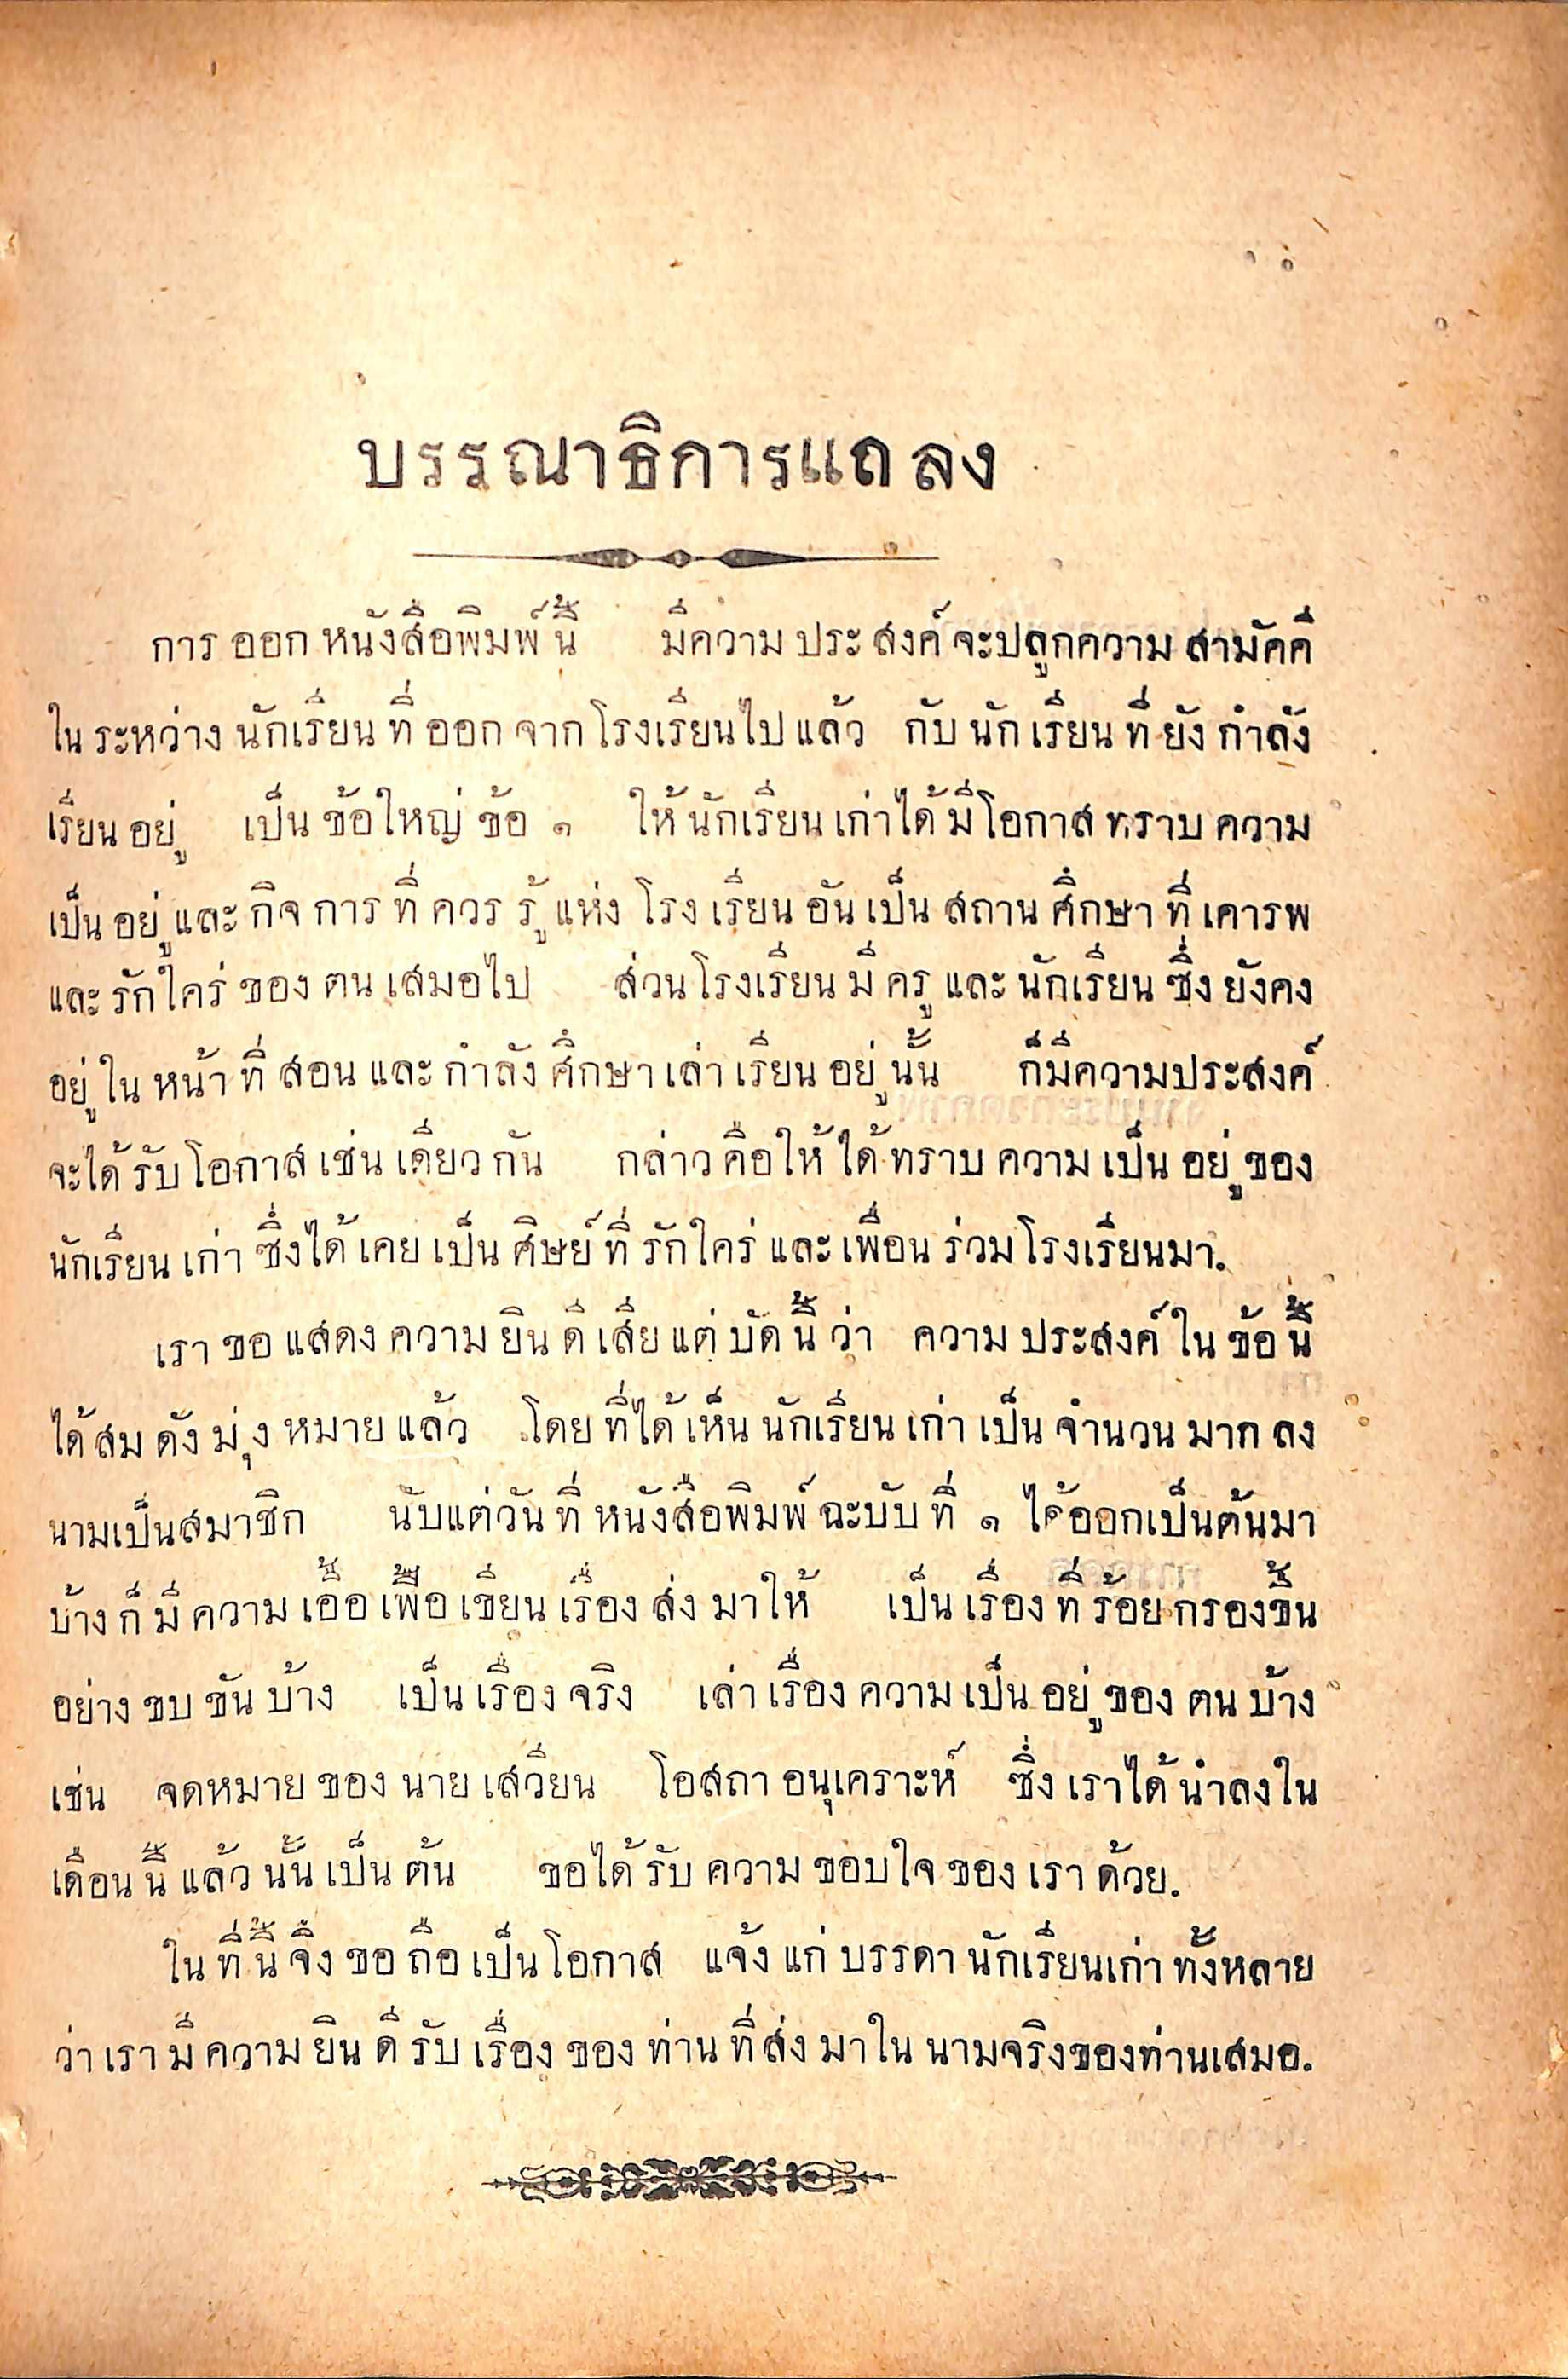 บรรณาธิการแถลง
การออกหนังสือพิมพ์นี้ มีความประสงค์จะปลูกความสามัคคี
ในระหว่างนักเรียนที่ออกจากโรงเรียนไปแล้ว กับนักเรียนที่ยังกำลัง
เรียนอยู่ เป็นข้อใหญ่ข้อ ๑ ให้นักเรียนเก่าได้มีโอกาสทราบความ
เป็นอยู่และกิจการที่ควรรู้แห่งโรงเรียนอันเป็นสถานศึกษาที่เคารพ
และรักใคร่ของตนเสมอไป ส่วนโรงเรียนมีครูและนักเรียนซึ่งยังคง
อยู่ในหน้าที่สอนและกำลังศึกษาเล่าเรียนอยู่นั้น ก็มีความประสงค์
จะได้รับโอกาสเช่นเดียวกัน กล่าวคือให้ได้ทราบความเป็นอยู่ของ
นักเรียนเก่าซึ่งได้เคยเป็นศิษย์ที่รักใคร่และเพื่อนร่วมโรงเรียนมา.
เราขอแสดงความยินดีเสียแต่บัดนี้ว่า ความประสงค์ในข้อนี้
ได้สมดังมุ่งหมายแล้ว โดยที่ได้เห็นนักเรียนเก่าเป็นจำนวนมากลง
นามเป็นสมาชิก นับแต่วันที่หนังสือพิมพ์ฉะบับที่ ๑ ได้ออกเป็นต้นมา
บ้างก็มีความเอื้อเฟื้อเขียนเรื่องส่งมาให้ เป็นเรื่องที่ร้อยกรองขึ้น
อย่างขบขันบ้าง เป็นเรื่องจริง เล่าเรื่องความเป็นอยู่ของตนบ้าง
เช่น จดหมายของนายเสวียน โอสถานุเคราะห์ ซึ่งเราได้นำลงใน
เดือนนี้แล้วนั้นเป็นต้น ขอได้รับความขอบใจของเราด้วย.
ในที่นี้จึงขอถือเป็นโอกาส แจ้งแก่บรรดานักเรียนเก่าทั้งหลาย
ว่าเรามีความยินดีรับเรื่องของท่านที่ส่งมาในนามจริงของท่านเสมอ.